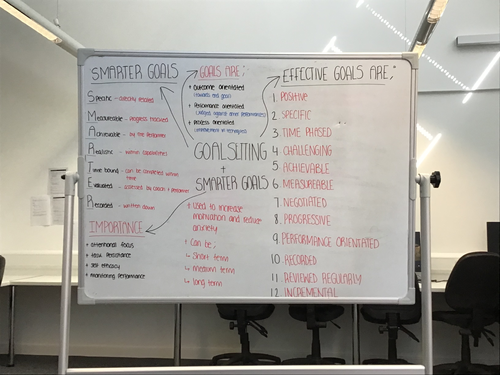 SMARTER GOALS
Specific - clearly stated
Measurable - progress tracked
Achievable - by the performer
Realistic - within capabilities
Time bound - can be completed within time
Evaluated - assessed by coach + performer
Recorded - written down
IMPORTANCE
+ Attentional focus
+ Task Persistance
+ Self efficacy
+ Monitoring Performance
GOALS ARE;
+ Outcome orientated
+ Performance orientated
(judged against other performances)
+ Process orientated
(improvement in techniques)
GOALSETTING
+
SMARTER GOALS
+ Used to increase
motivation and reduce
anxiety
+ Can be;
↳ Short term
↳ Medium term
↳ long term
EFFECTIVE GOALS ARE;
1. POSITIVE
2. SPECIFIC
3. TIME PHASED
4. CHALLENGING
5. ACHIEVABLE
6. MEASUREABLE
7. NEGOTIATED
8. PROGRESSIVE
9. PERFORMANCE ORIENTATED
10. RECORDED
11. REVIEWED REGULARLY
12. INCREMENTAL